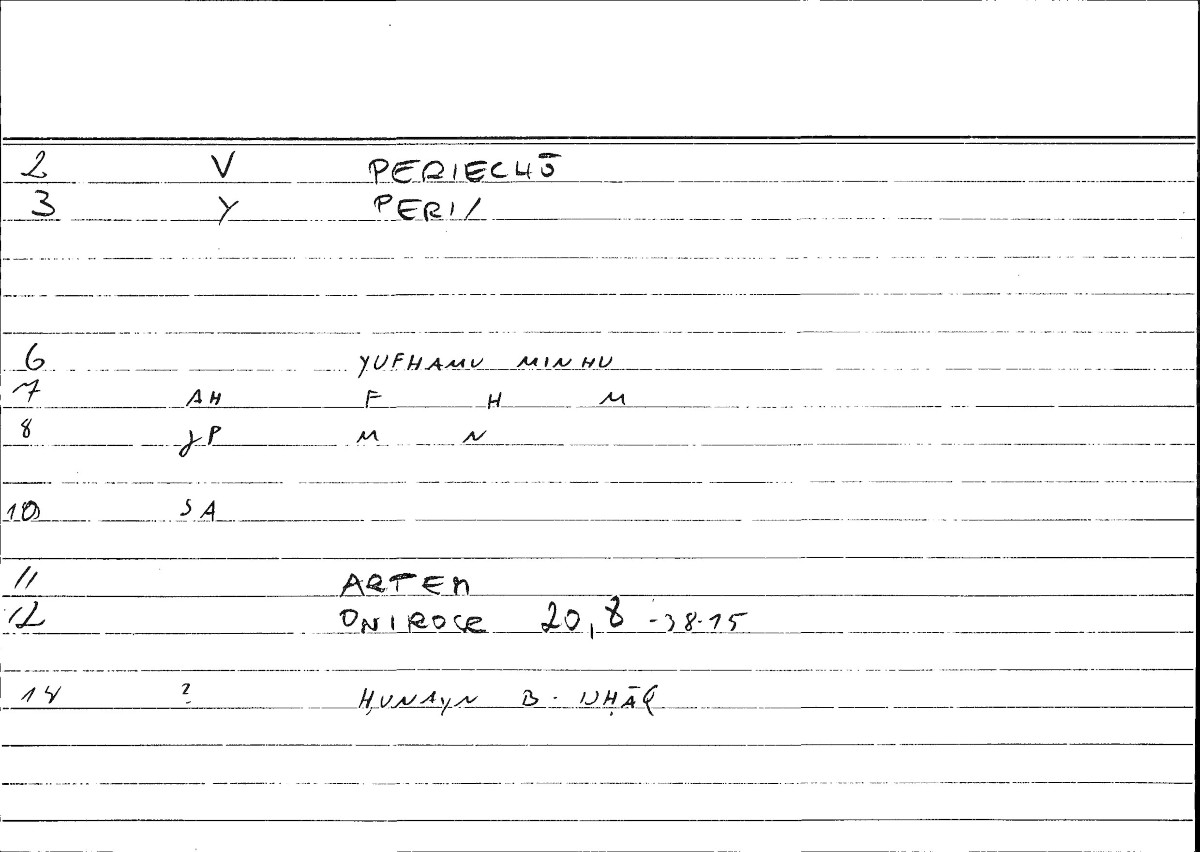 2 V PERIECHŌ
3 Y PERI/
6 YUFHAMU MINHU
7 AH F H M
8 JP M N
10 SA
11 ARTEM
12 ONIROCR 20,8 -38.15
14 ? ḤUNAYN B. ISḤĀQ